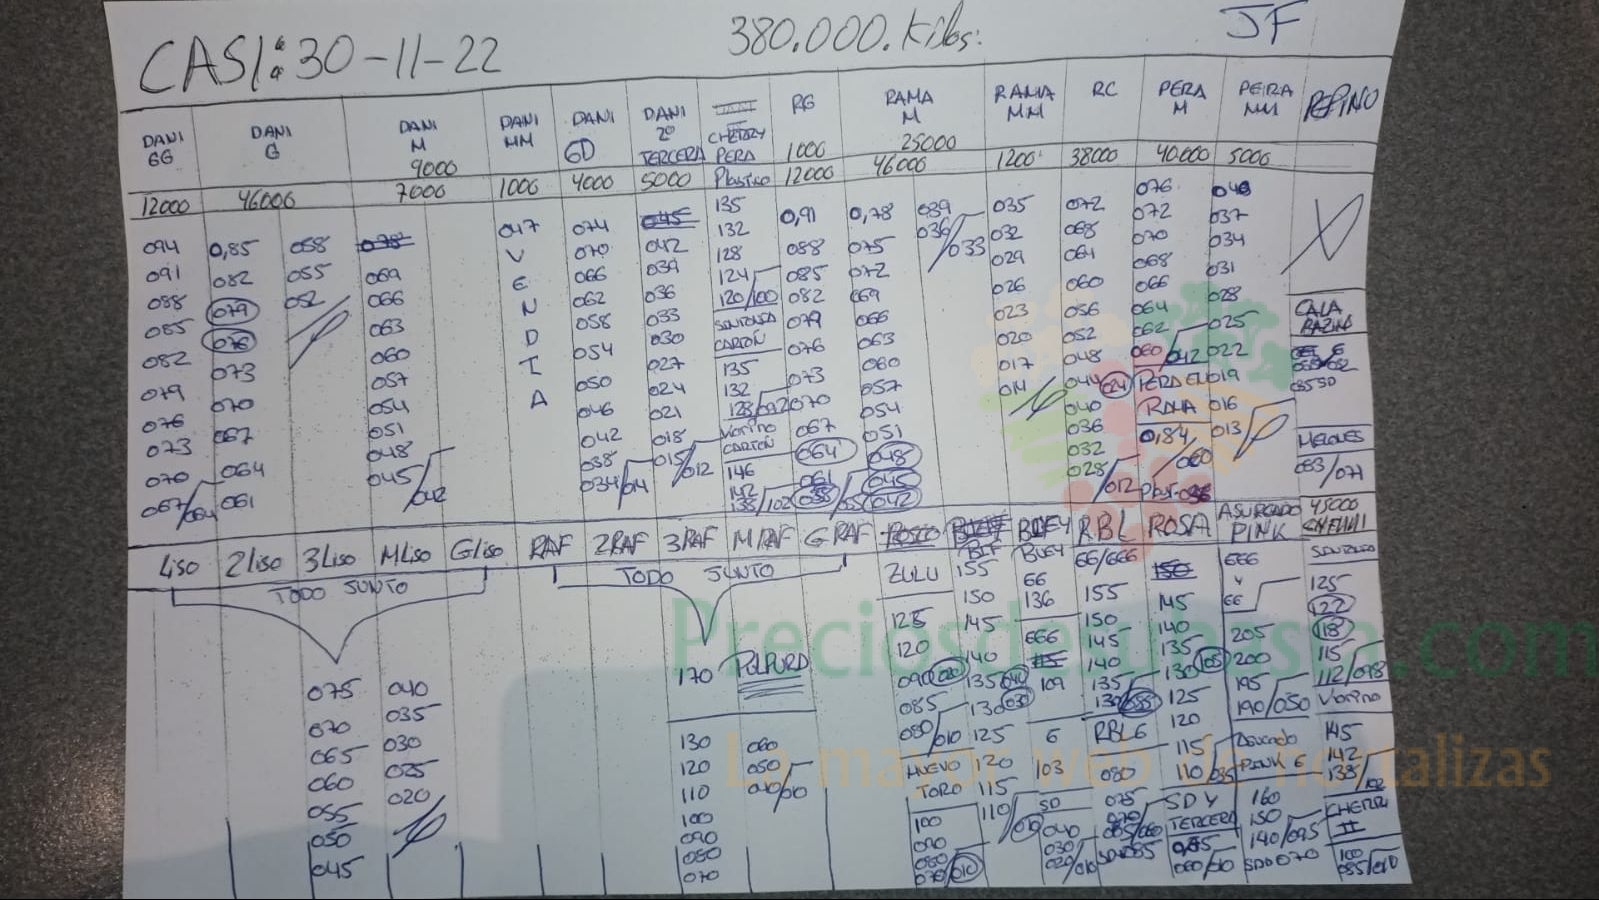 CASI: 30-11-22
380.000. Kilos:
JF
DANI GG
DANI G
DANI M
DANI MM
DANI GD
DANI 2º TERCERA
CHERRY PERA
RG
RAMA M
RAMA MM
RC
PERA M
PEIRA MM
PEPINO
9000
1000
25000
1200
38000
40.000
5000
12000
46000
7000
1000
4000
5000
Plastico
12000
46000
094
091
088
085
082
079
076
073
070
067/064
0,85
082
079
076
073
070
067
064
061
058
055
052
069
066
063
060
057
054
051
048
045/042
047
V
E
N
D
I
A
074
070
066
062
058
054
050
046
042
038
034/014
045
042
039
036
033
030
027
024
021
018
015/012
135
132
128
124
120/100
SENTENZA
CARTÓN
135
132
128/092
Viorino
CARTÓN
146
142
138/102
0,91
088
085
082
079
076
073
070
067
064
061
058/055
0,78
075
072
069
066
063
060
057
054
051
048
045
042
039
036/033
035
032
029
026
023
020
017
014
072
068
064
060
056
052
048
044 024
040
036
032
028/012
076
072
070
068
066
064
062
060/042
PERA EN
RAMA
0,84/060
040
037
034
031
028
025
022
019
016
013
CALA
BAZINO
MELONES
083/071
45000
Liso
2Liso
3Liso
MLiso
GLiso
RAF
2RAF
3RAF
MRAF
GRAF
BLEY
RBL
ROSA
ASURCADO PINK
TODO JUNTO
TODO JUNTO
075
070
065
060
055
050
045
040
035
030
025
020
170 PULPURD
130
120
110
100
090
080
070
060
050
040/010
ZULU
125
120
090 020
085
080/010
NUEVO
TORO
100
090
080
070/010
155
150
145
140
135 040
130 030
125
120
115
110/010
BLEY
66
136
666
109
6
103
SD
040
030
020/010
66/666
155
150
145
140
135
130/055
RBL6
080
075
070
145
140
135
130 105
125
120
115
110/035
SD Y
TERCERA
060/010
666
Y
66
205
200
195
190/050
PINK E
160
150
140/095
SDD070
125
122
118
115
112/093
Viorino
145
142
138/102
CHERRY
II
100
085/010
Preciosdesubasta.com
La mayor web de hortalizas